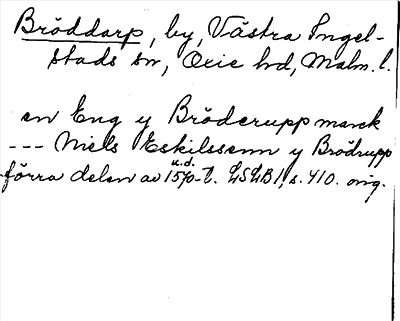 Bröddarp, by, Västra Ingel-
stads sn, Oxie hd, Malm. l.
en Eng y Bröderupp marck
--- Niels Eskilssenn y Brödrupp
u.d.
förra delen av 1570-t. LSLB I, s. 410. orig.